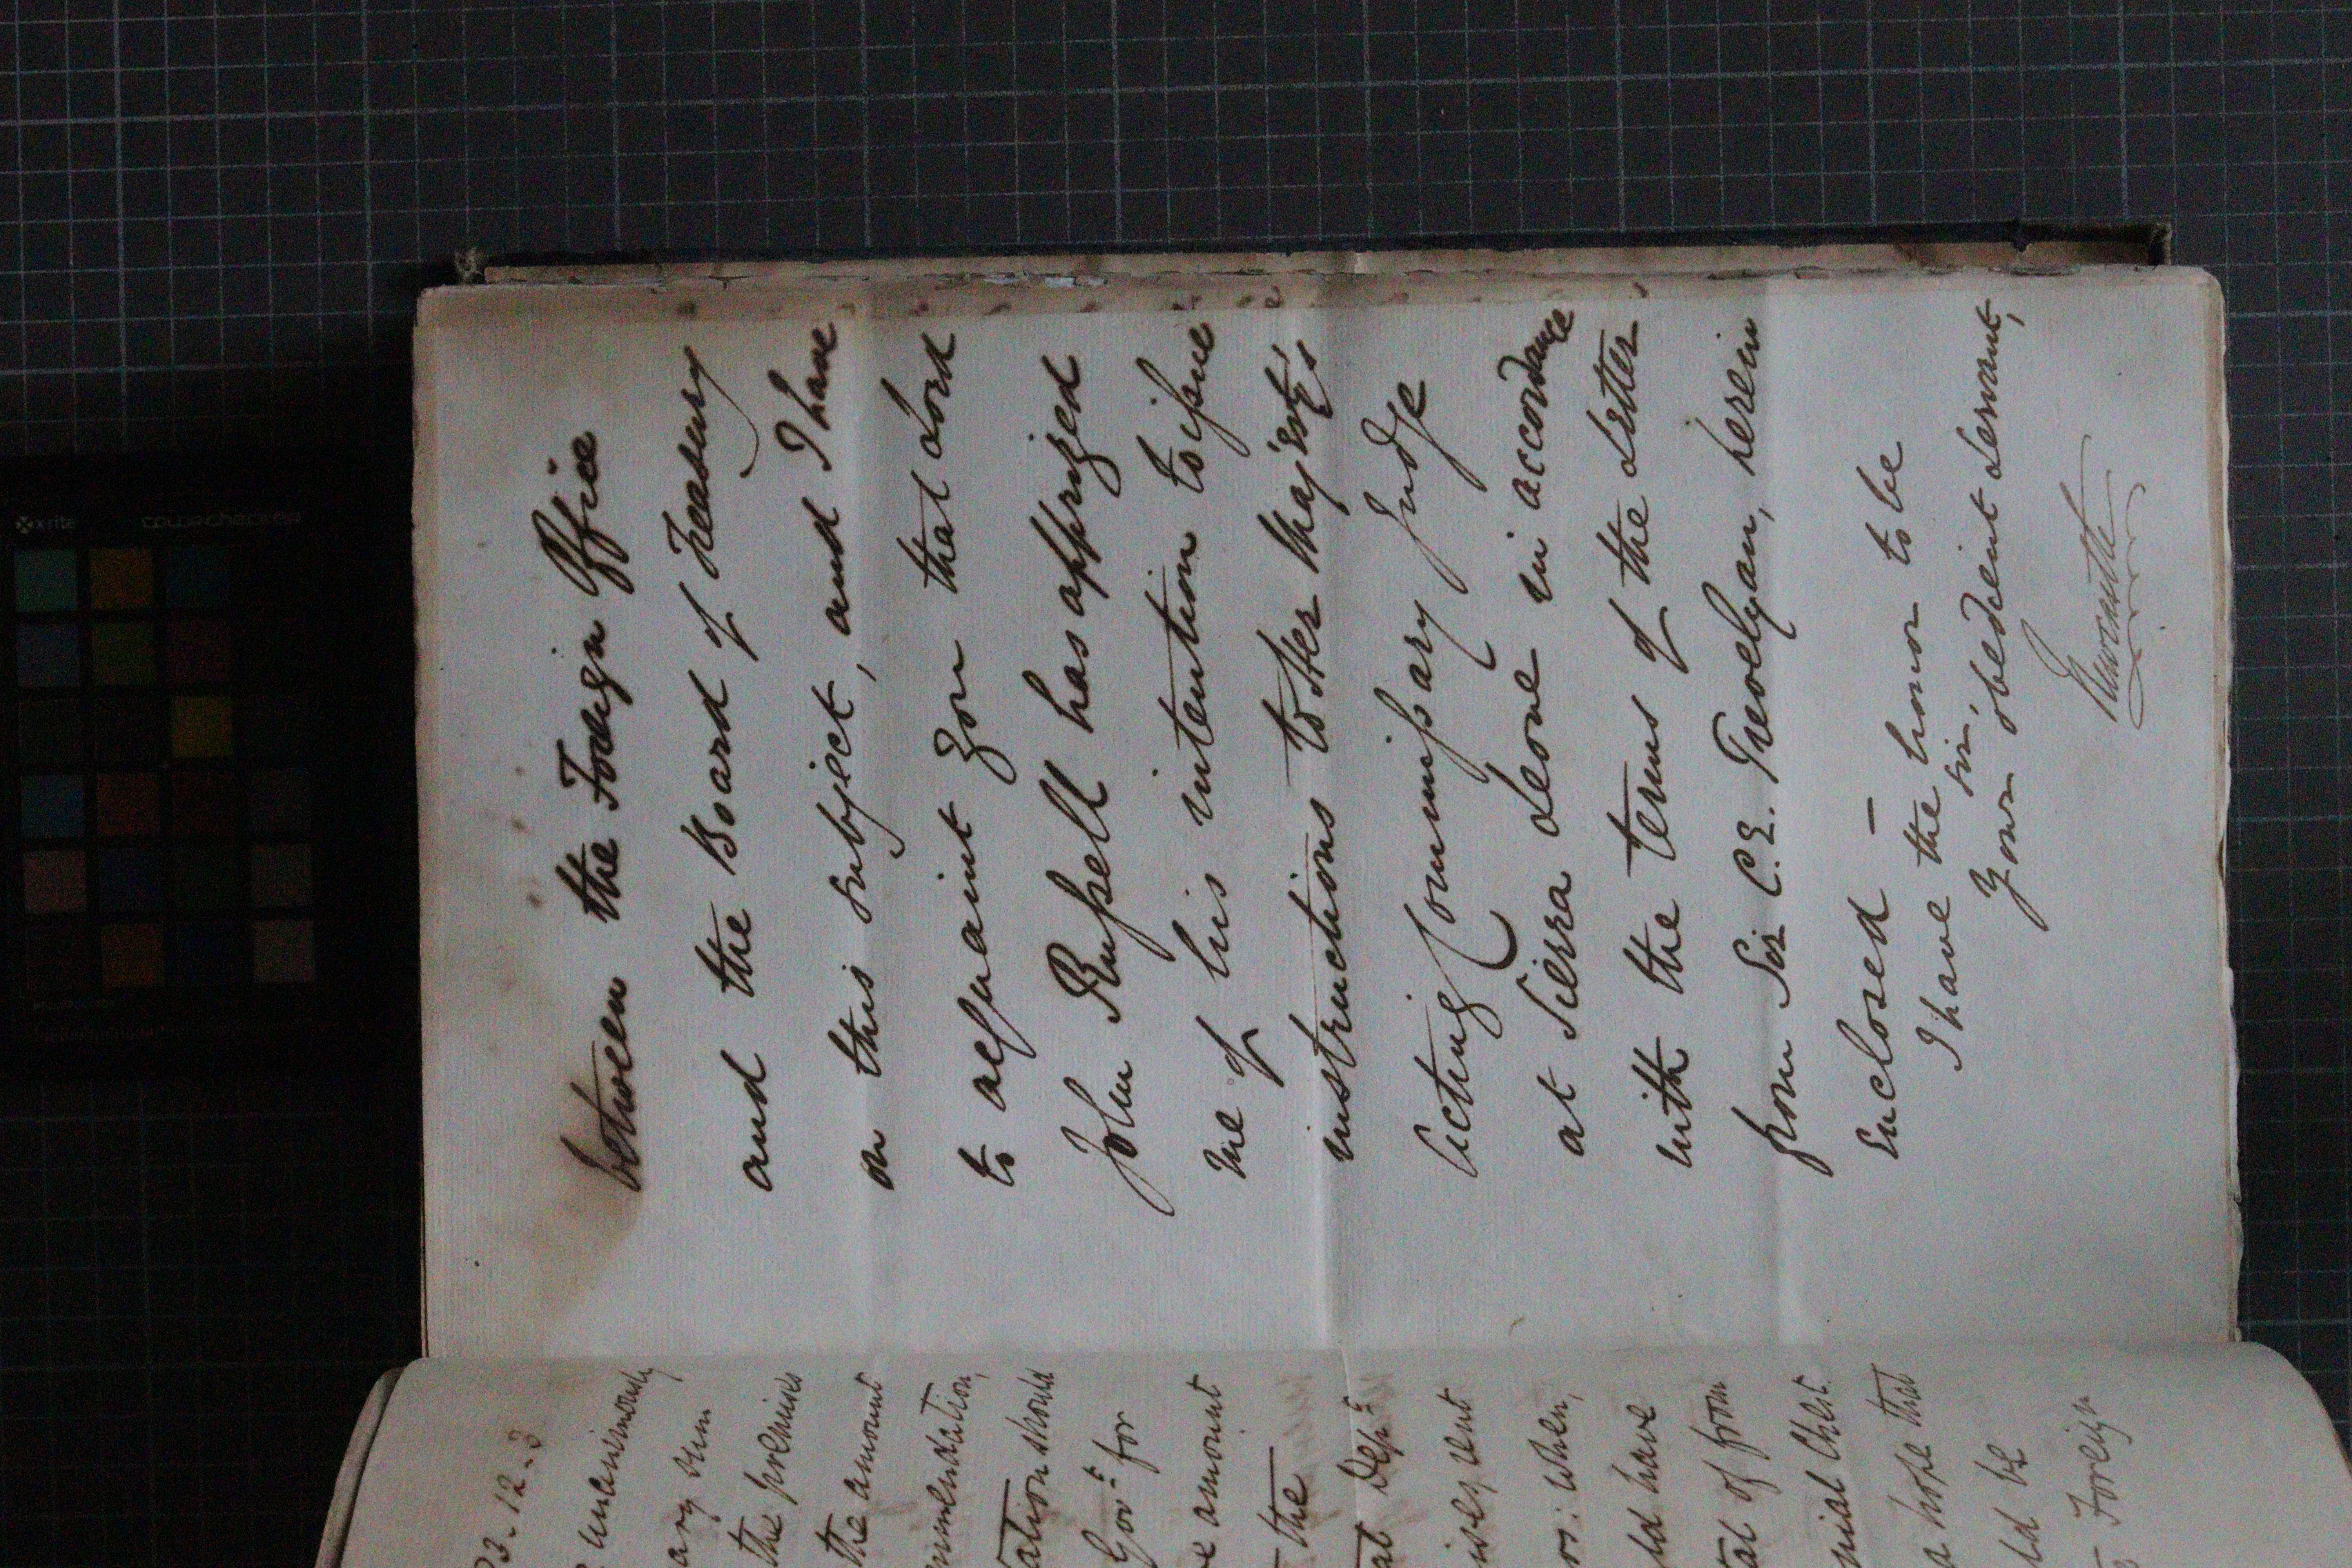 between the Foreign Office
and the Board of Treasury
on this subject, and I have
to acquaint you that Lord
John Russell has apprized
me of his intention to issue
instructions to Her Majesty's
Acting Commissary Judge
at Sierra Leone in accordance
with the terms of the Letter
from Sir C. E. Trevelyan, herein
enclosed —
I have the honor to be
Sir,
Your obedient Servant,
Newcastle
unanimously
sum
the premises
the amount
should
Govt for
amount
the
Dept
rent
when,
have
of from
Chest
hope that
be
Foreign
x-rite
colorchecker